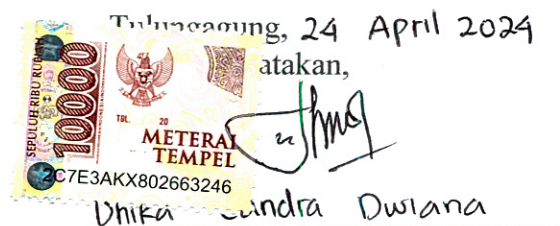 Tulungagung, 24 April 2024
atakan,
SEPULUH RIBU RUPIAH
10000
TGL. 20
METERAI
TEMPEL
2C7E3AKX802663246
Dhika Dwiana